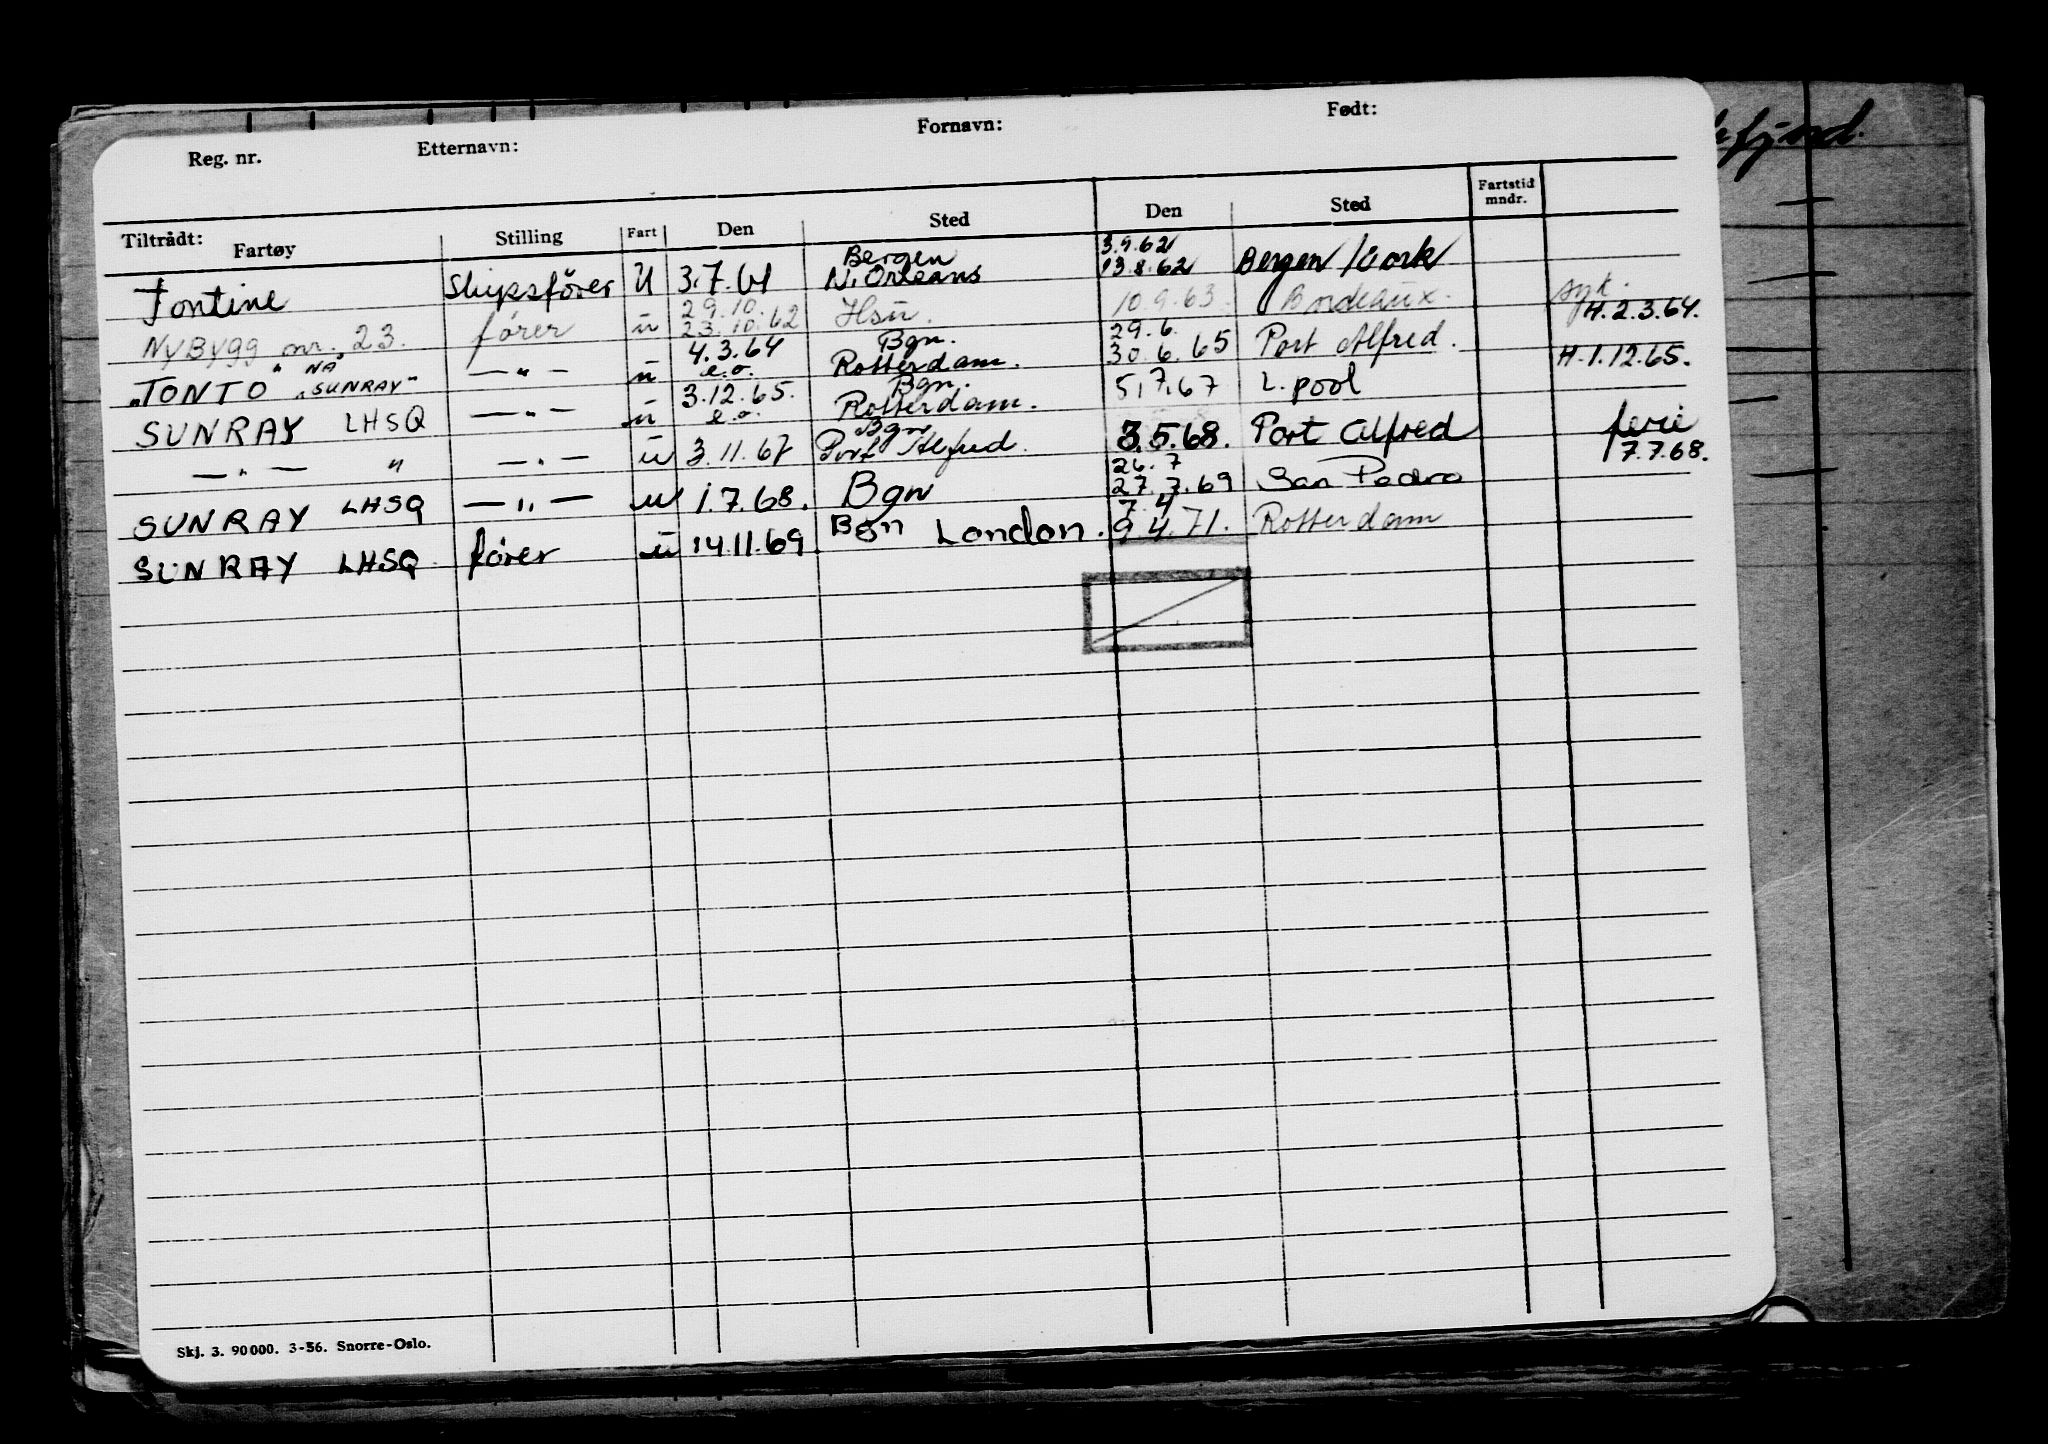 Reg. nr. Etternavn: Fornavn: Født:
Tiltrådt: Fartøy Stilling Fart Den Sted Den Sted Fartstid mndr.
Bergen 3.9.62
Fontine Skipsfører U 3.7.61 N. Orleans 13.8.62 Bergen / Cork
29.10. syk.
Nybygg nr. 23. fører u 23.10.62 Hsu. 10.9.63. Bordeaux. H. 2.3.64.
" NA " 4.3.64 Bgn. 29.6.
"TONTO "SUNRAY" — " — u e.o. Rotterdam. 30.6.65 Port Alfred. H. 1.12.65.
3.12.65. Bgn.
SUNRAY LHSQ — " — u e.o. Rotterdam. 5.7.67 L.pool
Bgn ferie
— " — " — " — u 3.11.67 Port Alfred. 3.5.68. Port Alfred 7.7.68.
26.7
SUNRAY LHSQ — " — u 1.7.68. Bgn 27.7.69 San Pedro
7.4
SUNRAY LHSQ fører u 14.11.69. Bgn London. 9.4.71. Rotterdam
Skj. 3. 90000. 3-56. Snorre-Oslo.